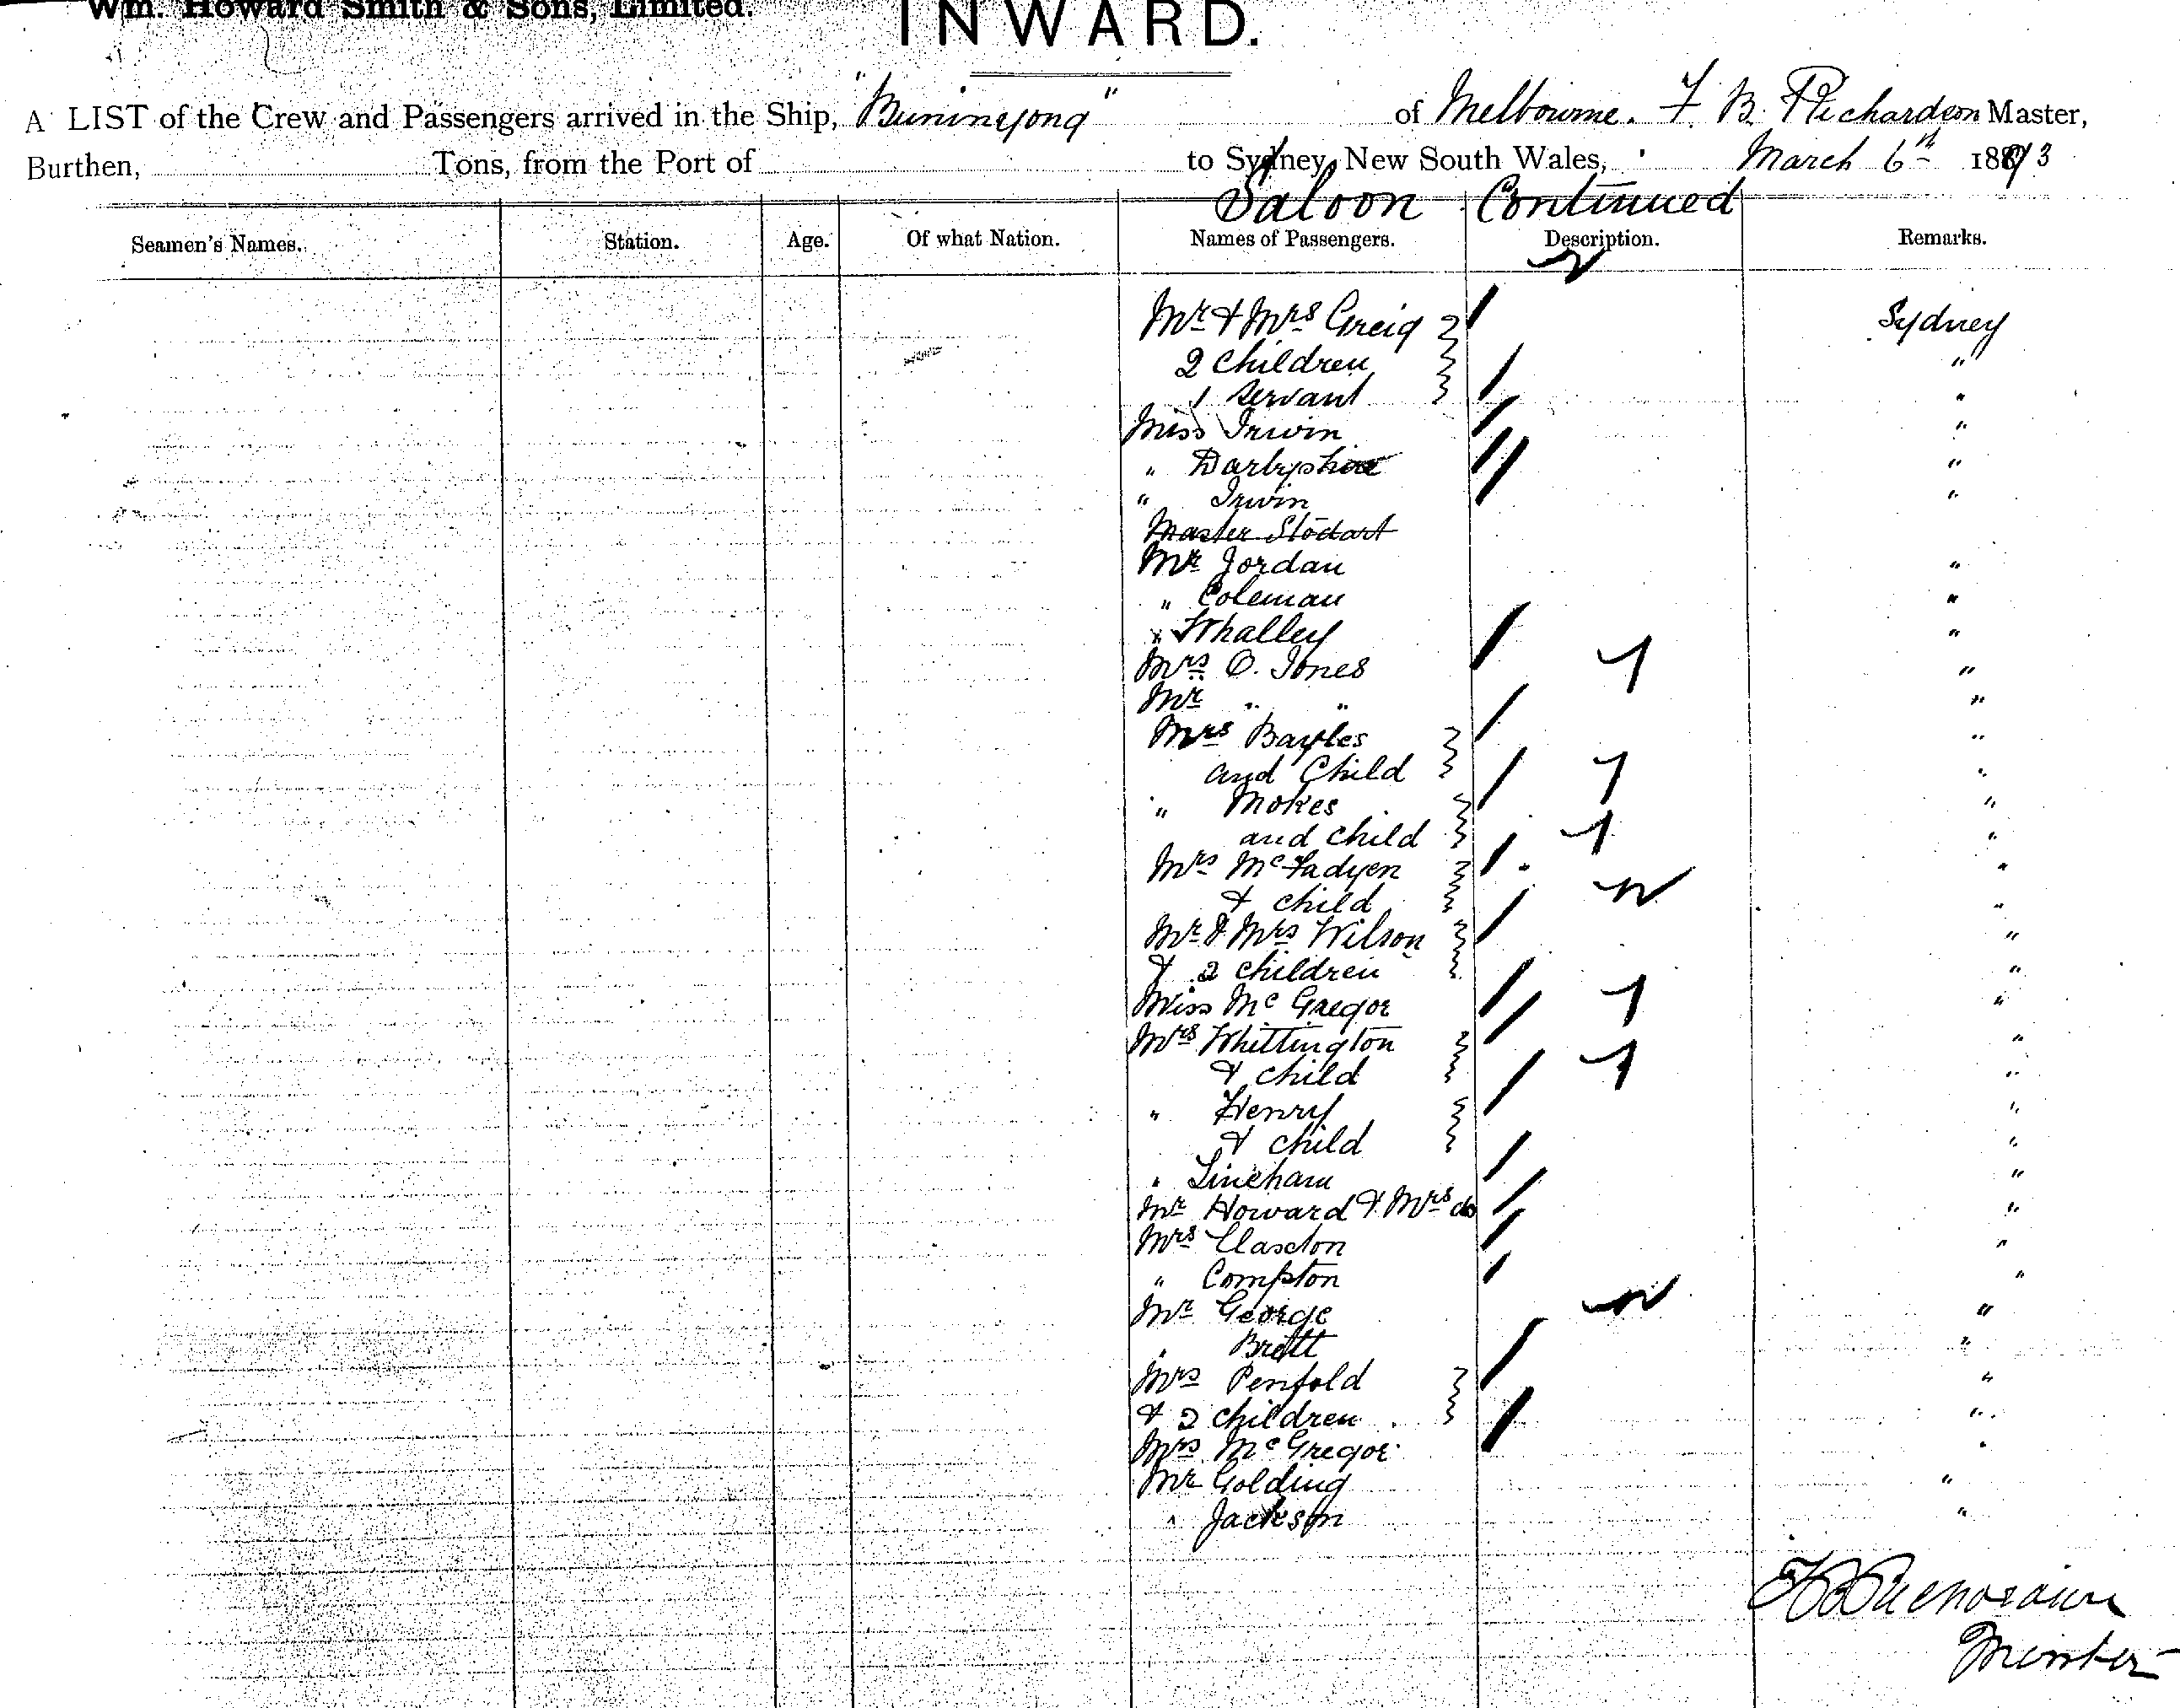 Wm. Howard Smith & Sons, Limited.
INWARD.
A LIST of the Crew and Passengers arrived in the Ship, "Buninyong" of Melbourne. F. B. Richardson Master,
Burthen, Tons, from the Port of to Sydney, New South Wales, March 6th 1893
Saloon Continued
Seamen's Names. Station. Age. Of what Nation. Names of Passengers. Description. Remarks.
Mr & Mrs Greig Sydney
2 Children "
1 Servant "
Miss Irwin "
" Darbyshire "
" Irwin "
Master Stodart
Mr Jordan "
" Coleman "
" Whalley "
Mrs O. Jones "
Mr " " "
Mrs Bayles "
and Child "
" Mokes "
and child "
Mrs McFadyen "
& child "
Mr & Mrs Wilson "
& 2 children "
Miss McGregor "
Mrs Whittington "
& child "
" Henry "
& child "
" Lineham "
Mr Howard & Mrs do "
Mrs Claxton "
" Compton "
Mr George "
" Brett "
Mrs Penfold "
& 2 children "
Mrs McGregor "
Mr Golding "
" Jackson "